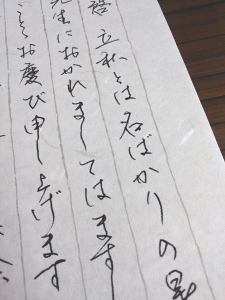 啓 立秋とは名ばかりの
先生におかれましてはます
お慶び申し上げます